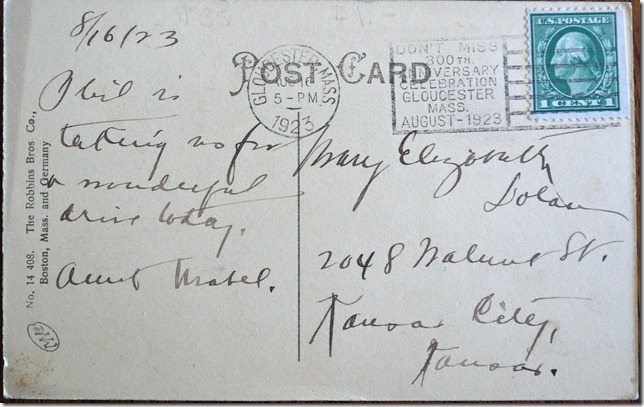 8/16/23
Phil is
taking us for
a wonderful
drive today.
Aunt Mabel.
POST CARD
GLOUCESTER, MASS
5-PM
1923
DON'T MISS
300TH.
ANNIVERSARY
CELEBRATION
GLOUCESTER
MASS.
AUGUST-1923
U.S. POSTAGE
1 CENT 1
Mary Elizabeth
Dolan
2048 Walnut St.
Kansas City,
Kansas.
No. 14 408. The Robbins Bros Co.,
Boston, Mass. and Germany